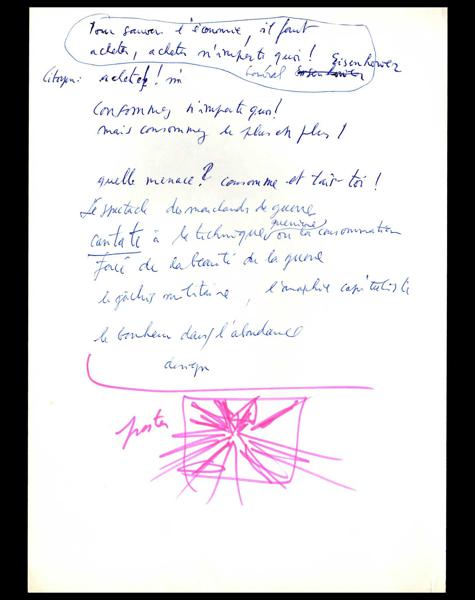 Pour sauver l'économie, il faut
acheter, acheter n'importe quoi! Eisenhower
Général Eisenhower
Citoyen: achetez! 
Consommez n'importe quoi!
mais consommez de plus en plus!
quelle menace? consomme et tais-toi!
Le spectacle des marchands de guerre
guerrière
cantate à la technique ou la consommation
Face de la beauté de la guerre
le gâchis militaire, l'anarchie capitaliste
le bonheur dans l'abondance
design
poster